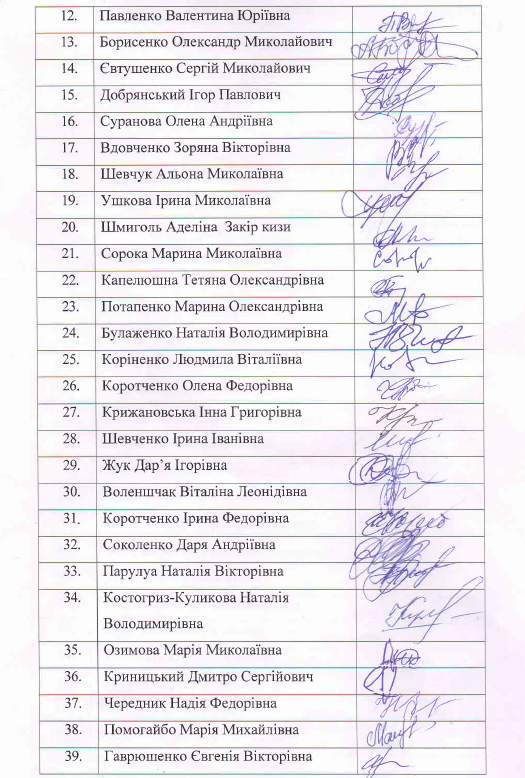 12. Павленко Валентина Юріївна
13. Борисенко Олександр Миколайович
14. Євтушенко Сергій Миколайович
15. Добрянський Ігор Павлович
16. Суранова Олена Андріївна
17. Вдовченко Зоряна Вікторівна
18. Шевчук Альона Миколаївна
19. Ушкова Ірина Миколаївна
20. Шмиголь Аделіна Закір кизи
21. Сорока Марина Миколаївна
22. Капелюшна Тетяна Олександрівна
23. Потапенко Марина Олександрівна
24. Булаженко Наталія Володимирівна
25. Коріненко Людмила Віталіївна
26. Коротченко Олена Федорівна
27. Крижановська Інна Григорівна
28. Шевченко Ірина Іванівна
29. Жук Дар’я Ігорівна
30. Воленшчак Віталіна Леонідівна
31. Коротченко Ірина Федорівна
32. Соколенко Даря Андріївна
33. Парулуа Наталія Вікторівна
34. Костогриз-Куликова Наталія
Володимирівна
35. Озимова Марія Миколаївна
36. Криницький Дмитро Сергійович
37. Чередник Надія Федорівна
38. Помогайбо Марія Михайлівна
39. Гаврюшенко Євгенія Вікторівна